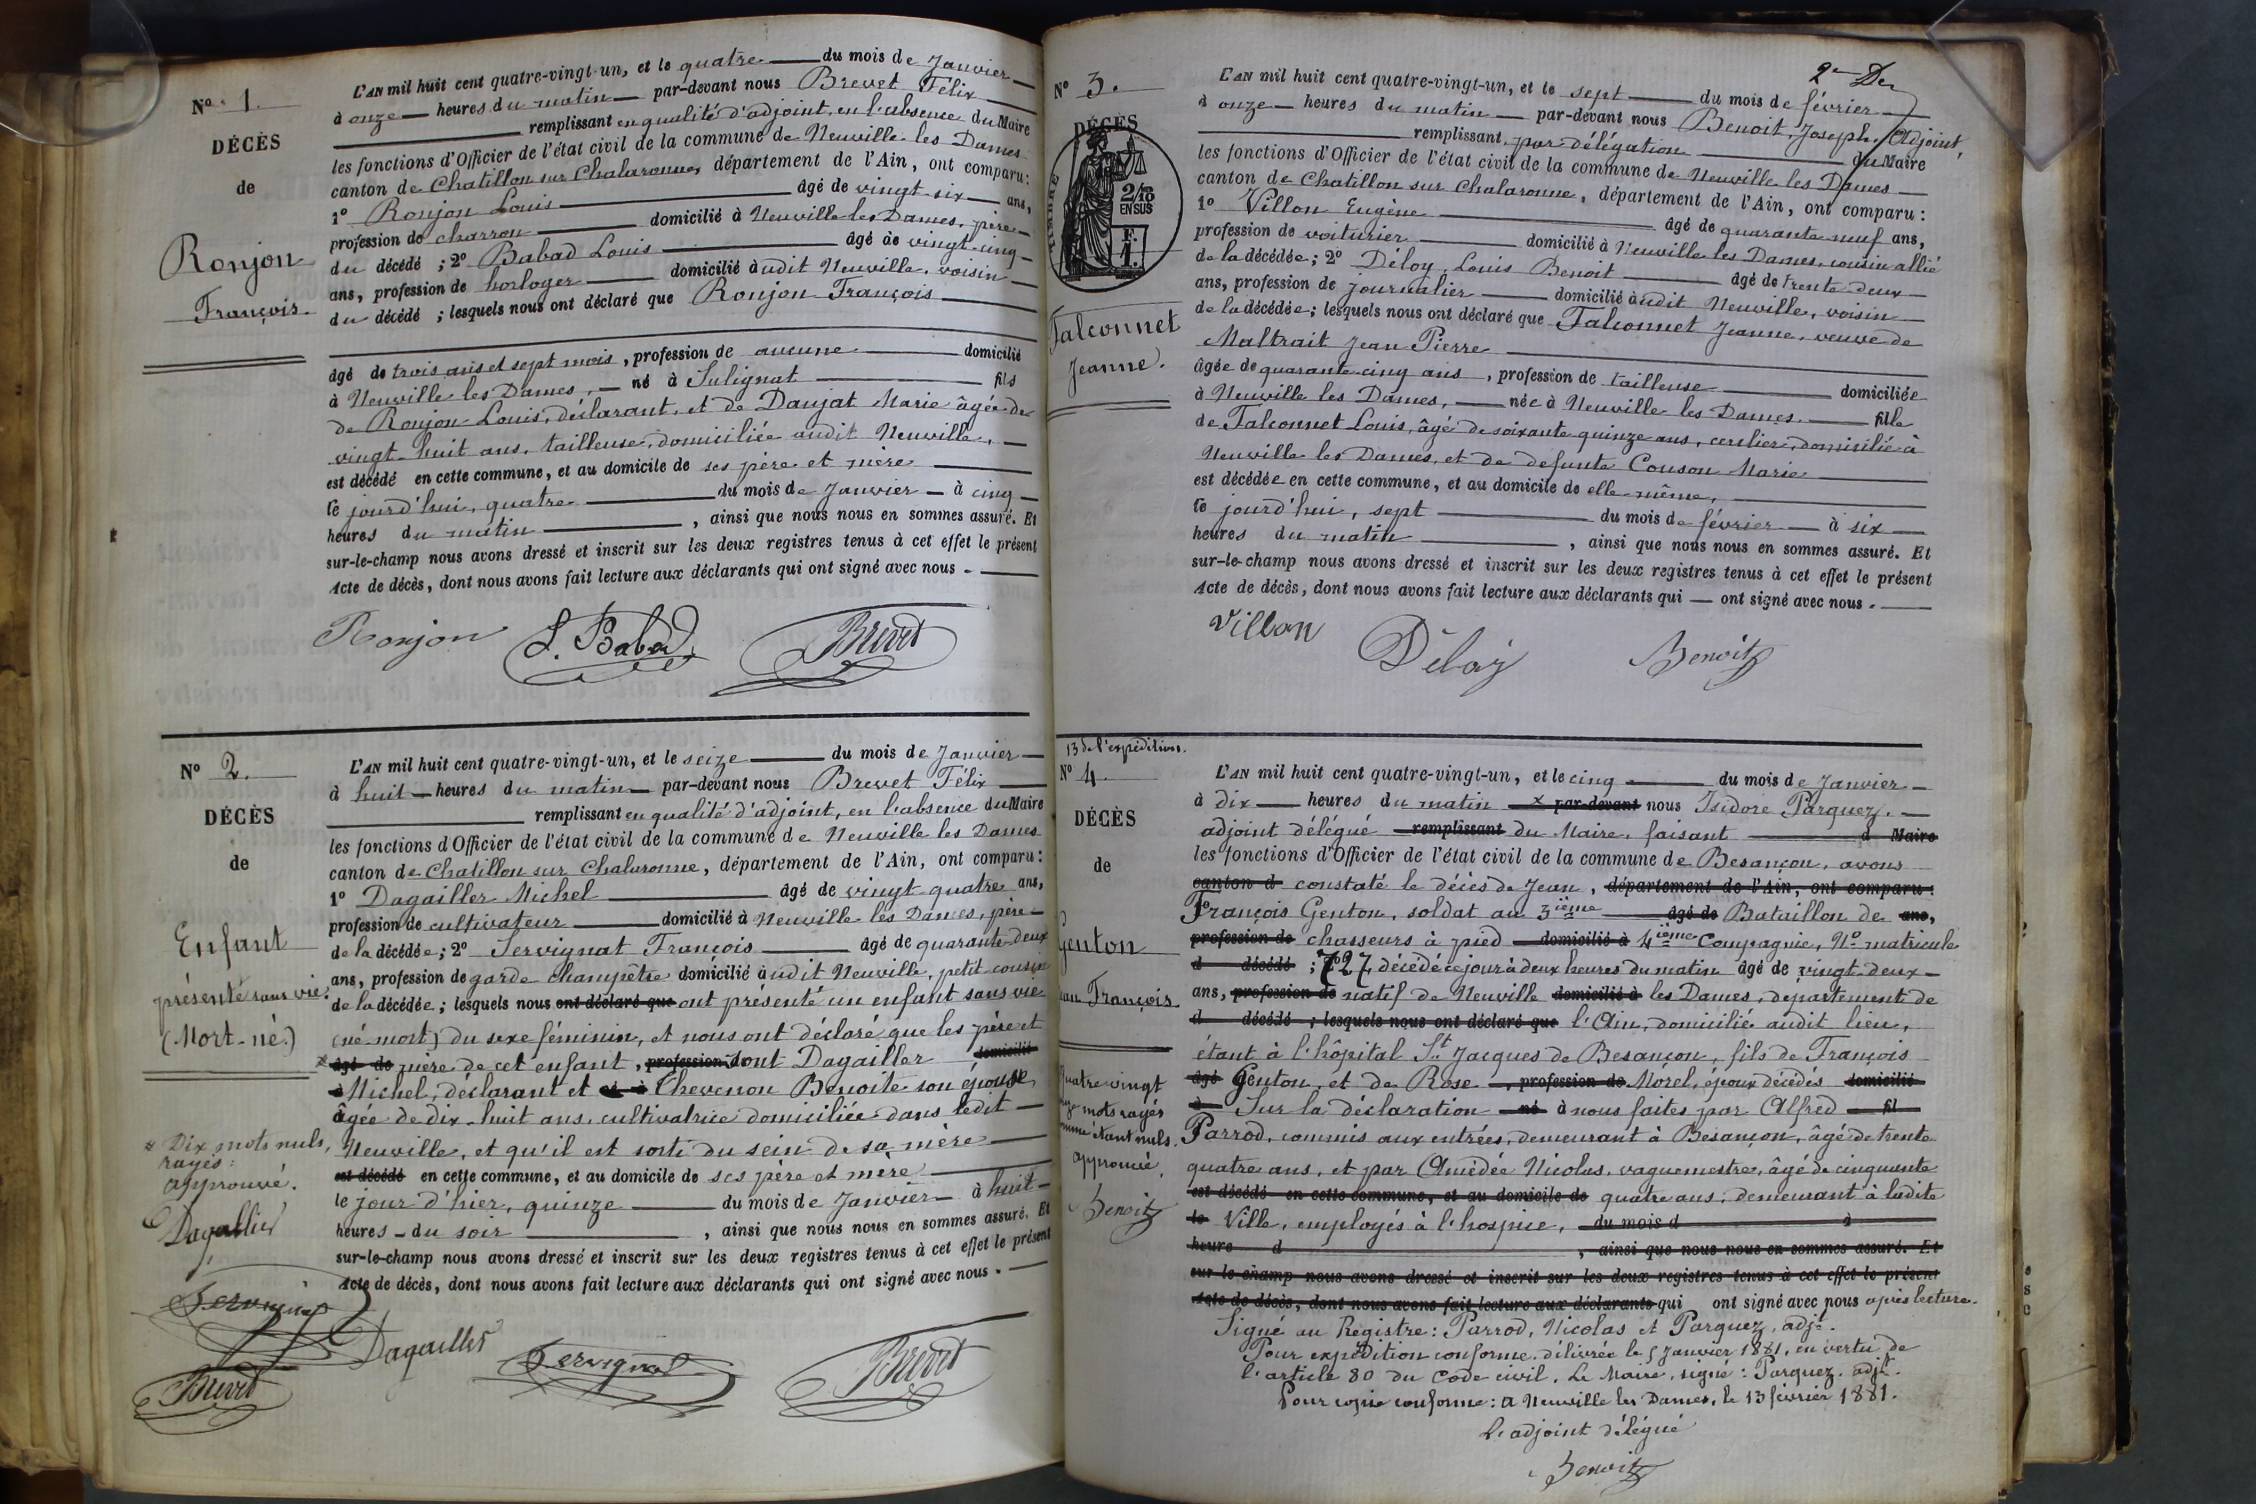 N° 1.
DÉCÈS
de
Ronjon
François.
L'AN mil huit cent quatre-vingt-un, et le quatre du mois de Janvier
à onze heures du matin par-devant nous Brevet Félix
remplissant en qualité d'adjoint, en l'absence du Maire
les fonctions d'Officier de l'état civil de la commune de Neuville les Dames
canton de Chatillon sur Chalaronne, département de l'Ain, ont comparu :
1° Ronjon Louis âgé de vingt-six ans,
profession de charron domicilié à Neuville les Dames, père
du décédé ; 2° Babad Louis âgé de vingt-cinq
ans, profession de horloger domicilié audit Neuville, voisin
du décédé ; lesquels nous ont déclaré que Ronjon François
âgé de trois ans et sept mois, profession de aucune domicilié
à Neuville les Dames, né à Sulignat fils
de Ronjon Louis, déclarant, et de Danjat Marie âgée de
vingt-huit ans, tailleuse, domiciliée audit Neuville,
est décédé en cette commune, et au domicile de ses père et mère
le jourd'hui, quatre du mois de Janvier à cinq
heures du matin, ainsi que nous nous en sommes assuré. Et
sur-le-champ nous avons dressé et inscrit sur les deux registres tenus à cet effet le présent
Acte de décès, dont nous avons fait lecture aux déclarants qui ont signé avec nous.
Ronjon L. Babad Brevet
N° 2.
DÉCÈS
de
Enfant
présenté sans vie.
(Mort-né.)
x Dix mots nuls,
rayés :
approuvé.
Dagallier
Servignat
Brevet
L'AN mil huit cent quatre-vingt-un, et le seize du mois de Janvier
à huit heures du matin par-devant nous Brevet Félix
remplissant en qualité d'adjoint, en l'absence du Maire
les fonctions d'Officier de l'état civil de la commune de Neuville les Dames
canton de Chatillon sur Chalaronne, département de l'Ain, ont comparu :
1° Dagailler Michel âgé de vingt quatre ans,
profession de cultivateur domicilié à Neuville les Dames, père
de la décédée ; 2° Servignat François âgé de quarante deux
ans, profession de garde champêtre domicilié audit Neuville, petit cousin
de la décédée ; lesquels nous ont déclaré que ont présenté un enfant sans vie
(né-mort) du sexe féminin, et nous ont déclaré que les père et
x âgé de mère de cet enfant, profession sont Dagailler domicilié
à Michel, déclarant et et à Chevenon Benoite son épouse,
âgée de dix-huit ans, cultivatrice domiciliée dans ledit
Neuville, et qu'il est sorti du sein de sa mère
est décédé en cette commune, et au domicile de ses père et mère
le jour d'hier, quinze du mois de Janvier à huit
heures du soir, ainsi que nous nous en sommes assuré. Et
sur-le-champ nous avons dressé et inscrit sur les deux registres tenus à cet effet le présent
Acte de décès, dont nous avons fait lecture aux déclarants qui ont signé avec nous.
Dagailler Servignat Brevet
2e
N° 3.
DÉCÈS
TIMBRE
2/10
EN SUS
F.
1.
Falconnet
Jeanne.
L'AN mil huit cent quatre-vingt-un, et le sept du mois de février
à onze heures du matin par-devant nous Benoit, Joseph, Adjoint,
remplissant par délégation du Maire
les fonctions d'Officier de l'état civil de la commune de Neuville les Dames
canton de Chatillon sur Chalaronne, département de l'Ain, ont comparu :
1° Villon Eugène âgé de quarante neuf ans,
profession de voiturier domicilié à Neuville les Dames, cousin allié
de la décédée ; 2° Déloy, Louis Benoit âgé de trente deux
ans, profession de journalier domicilié audit Neuville, voisin
de la décédée ; lesquels nous ont déclaré que Falconnet Jeanne, veuve de
Maltrait Jean Pierre
âgée de quarante-cinq ans, profession de tailleuse domiciliée
à Neuville les Dames, née à Neuville les Dames, fille
de Falconnet Louis, âgé de soixante quinze ans, domicilié à
Neuville les Dames, et de defunte Couson Marie
est décédée en cette commune, et au domicile de elle-même,
le jourd'hui, sept du mois de février à six
heures du matin, ainsi que nous nous en sommes assuré. Et
sur-le-champ nous avons dressé et inscrit sur les deux registres tenus à cet effet le présent
Acte de décès, dont nous avons fait lecture aux déclarants qui ont signé avec nous.
Villon Déloy Benoit
13 de l'expédition.
N° 4.
DÉCÈS
de
Genton
Jean François
quatre vingt
onze mots rayés
comme étant nuls.
approuvé.
Benoit
L'AN mil huit cent quatre-vingt-un, et le cinq du mois de Janvier
à dix heures du matin x par-devant nous Isidore Parguez,
adjoint délégué remplissant du Maire, faisant d Maire
les fonctions d'Officier de l'état civil de la commune de Besançon, avons
canton d constaté le décès de Jean, département de l'Ain, ont comparu :
François Genton, soldat au 3ième âgé de Bataillon de ans,
profession de chasseurs à pied domicilié à 4ième Compagnie, N° matricule
d décédé ; 727, décédé ce jour à deux heures du matin âgé de vingt-deux
ans, profession de natif de Neuville domicilié à les Dames, département de
d décédé ; lesquels nous ont déclaré que l'Ain, domicilié audit lieu,
étant à l'hôpital St Jacques de Besançon, fils de François
âgé Genton, et de Rose, profession de Morel, époux décédés domicilié
à Sur la déclaration né à nous faites par Alfred fil
Parrod, commis aux entrées, demeurant à Besançon, âgé de trente
quatre ans, et par Amédée Nicolas, vaguemestre, âgé de cinquante
est décédé en cette commune, et au domicile de quatre ans, demeurant à ladite
le Ville, employés à l'hospice, du mois d à
heure d, ainsi que nous nous en sommes assuré. Et
sur-le-champ nous avons dressé et inscrit sur les deux registres tenus à cet effet le présent
Acte de décès, dont nous avons fait lecture aux déclarants qui ont signé avec nous après lecture.
Signé au Registre : Parrod, Nicolas et Parguez, adjt.
Pour expédition conforme, délivrée le 5 Janvier 1881, en vertu de
l'article 80 du Code civil. Le Maire, signé : Parguez, adjt.
Pour copie conforme : A Neuville les Dames, le 13 février 1881.
L'adjoint délégué
Benoit